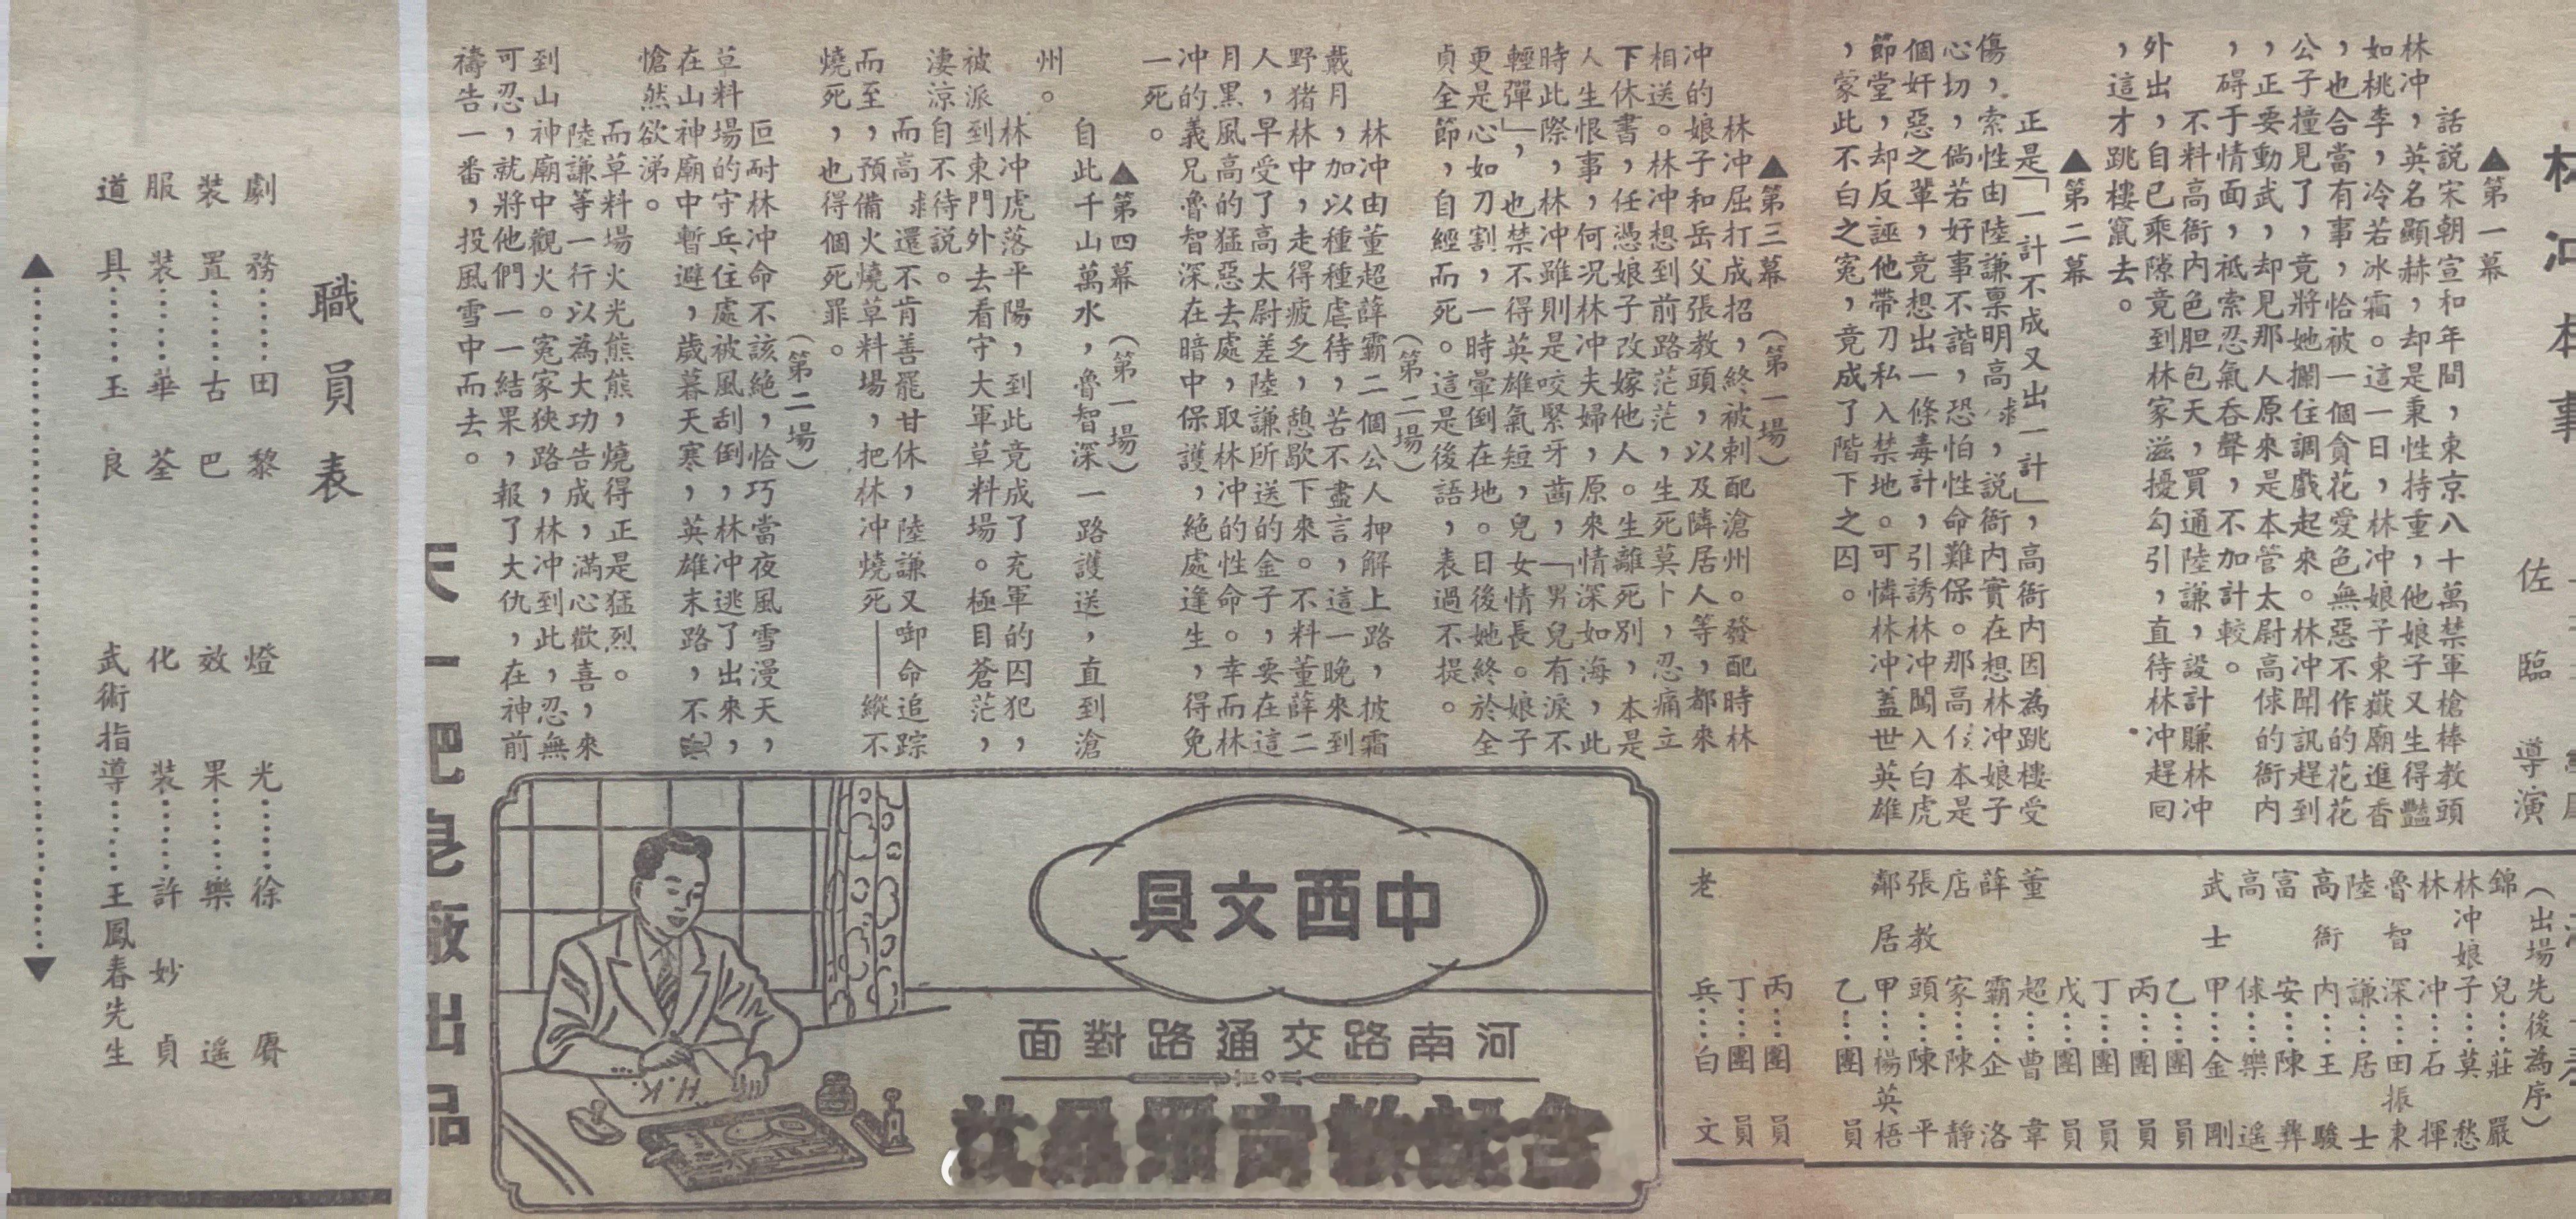 林冲本事
佐臨導演
▲第一幕
話說宋朝宣和年間，東京八十萬禁軍槍棒教頭
林冲，英名顯赫，却是秉性持重，他娘子又生得豔
如桃李，冷若冰霜。這一日，林冲娘子東嶽廟進香
，也合當有事，恰被一個貪花愛色無惡不作的花花
公子撞見了，竟將她攔住調戲起來。林冲聞訊趕到
，正要動武，却見那人原來是本管太尉高俅的衙内
，碍于情面，祗索忍氣吞聲，不加計較。
不料高衙内色胆包天，買通陸謙，設計賺林冲
外出，自已乘隙竟到林家滋擾勾引，直待林冲趕回
，這才跳樓竄去。
▲第二幕
正是「一計不成又出一計」，高衙内因為跳樓受
傷，索性由陸謙稟明高俅，説衙内實在想林冲娘子
心切，倘若好事不諧，恐怕性命難保。那高俅本是
個奸惡之輩，竟想出一條毒計，引誘林冲闖入白虎
節堂，却反誣他帶刀私入禁地。可憐林冲蓋世英雄
，家此不白之冤，竟成了階下之囚。
▲第三幕　（第一場）
林冲屈打成招，終被刺配滄州。發配時林
冲的娘子和岳父張教頭，以及隣居人等，都來
相送。林冲想到前路茫茫，生死莫卜，忍痛立
下休書，任憑娘子改嫁他人。生離死別，本是
人生恨事，何況林冲夫婦，原來情深如海，此
時此際，林冲雖則是咬緊牙齒，「男兒有淚不
輕彈」，也禁不得英雄氣短，兒女情長。娘子
更是心如刀割，一時暈倒在地。日後她終於全
貞全節，自經而死。這是後語，表過不提。
（第二場）
林冲由董超薛霸二個公人押解上路，披霜
戴月，加以種種虐待，苦不盡言，這一晚來到
野猪林中，走得疲乏，憩歇下來。不料董薛二
人，早受了高太尉差陸謙所送的金子，要在這
月黑風高的猛惡去處，取林冲的性命。幸而林
冲的義兄魯智深在暗中保護，絕處逢生，得免
一死。
▲第四幕　（第一場）
自此千山萬水，魯智深一路護送，直到滄
州。
林冲虎落平陽，到此竟成了充軍的囚犯，
被派到東門外去看守大軍草料場。極目蒼茫，
淒涼自不待説。
而高俅還不肯善罷甘休，陸謙又啣命追踪
而至，預備火燒草料場，把林冲燒死——縱不
燒死，也得個死罪。
（第二場）
叵耐林冲命不該絕，恰巧當夜風雪漫天，
草料場的守兵住處被風刮倒，林冲逃了出來，
在山神廟中暫避，歲暮天寒，英雄末路，不
愴然欲涕。
而草料場火光熊熊，燒得正是猛烈。
陸謙等一行以為大功告成，滿心歡喜，來
到山神廟中觀火。冤家狹路，林冲到此，忍無
可忍，就將他們一一結果，報了大仇，在神前
禱告一番，投風雪中而去。
（出場先後為序）
錦兒……莊嚴
林冲娘子……莫愁
林冲……石揮
魯智深……田振東
陸謙……居士
高衙内……王駿
富安……陳彝
高俅……樂遥
武士甲……金剛
乙……團員
丙……團員
丁……團員
戊……團員
董超……曹韋
薛霸……企洛
店家……陳靜
張教頭……陳平
鄰居甲……楊英梧
乙……團員
丙……團員
丁……團員
老兵……白文
中西文具
河南路交通路對面
H.K.
天一肥皂廠出品
職員表
劇務……田黎
裝置……古巴
服裝……華荃
道具……玉良
燈光……徐賡
效果……樂遥
化裝……許妙貞
武術指導……王鳳春先生